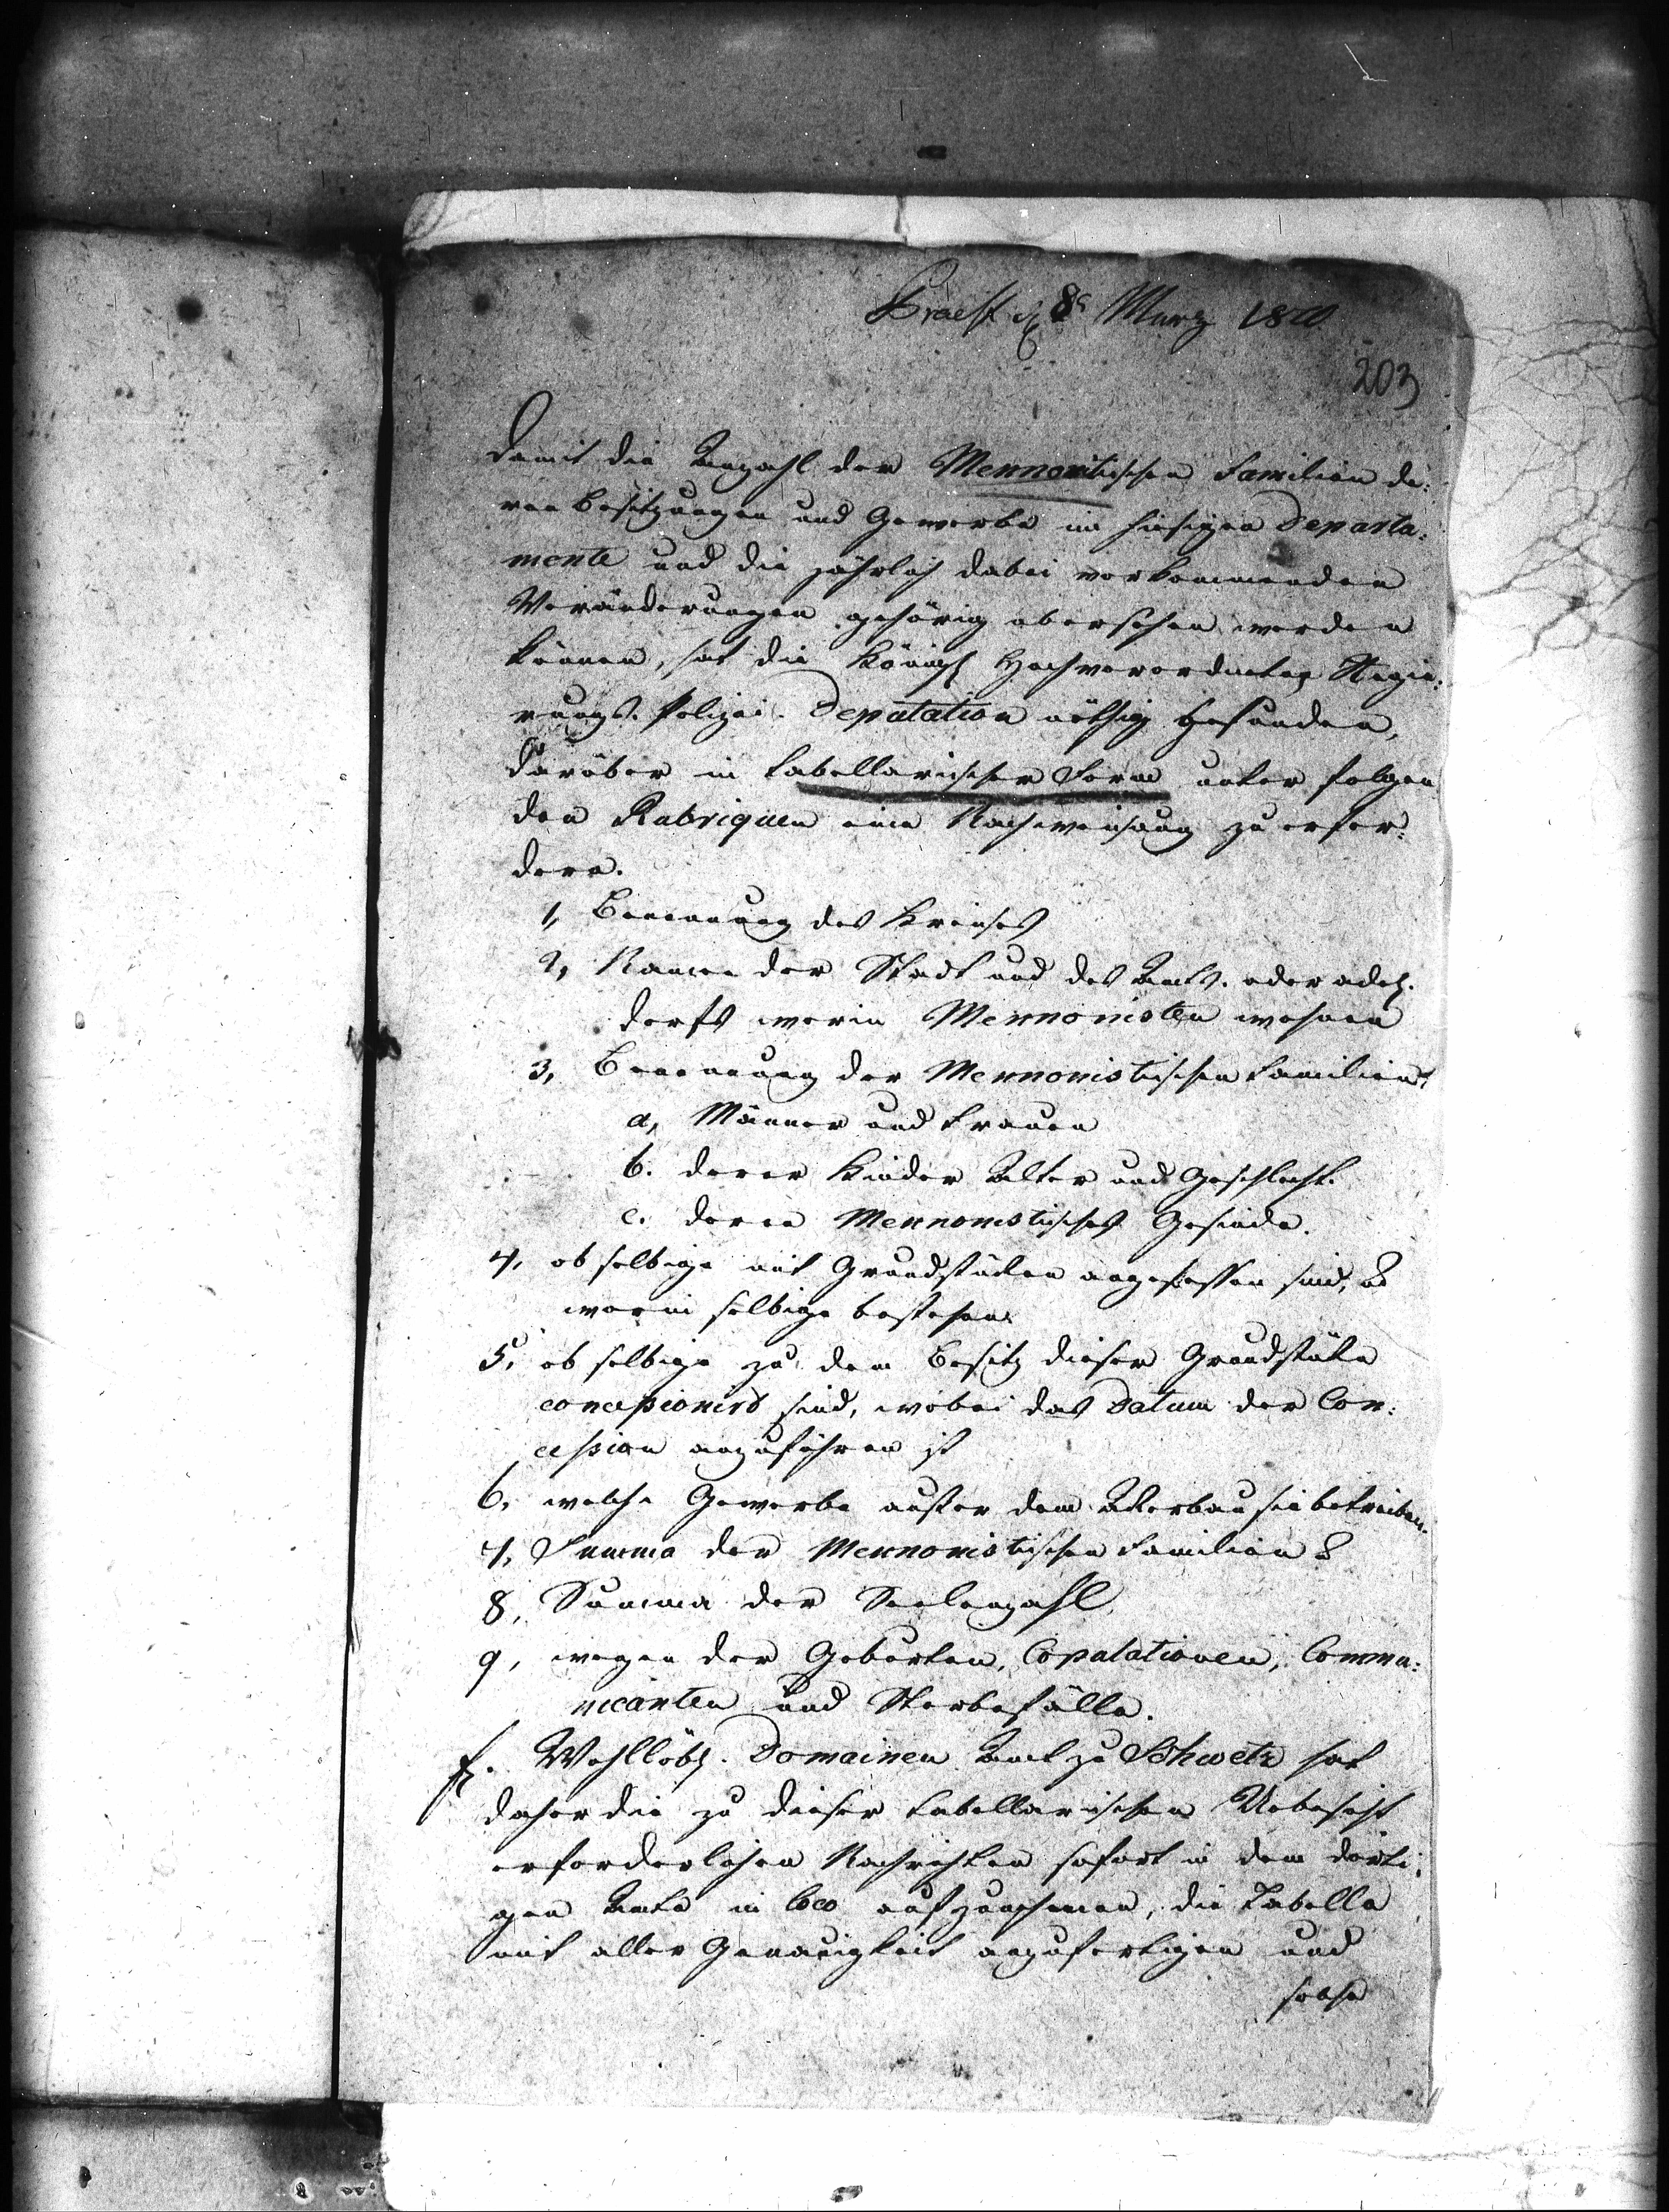 Praest d 8t Marz
203
Damit die Anzahl der Mennonitischen Familien de:
ren Besitzungen und Gewerbe im hiesigen Departe:
mente und die jährlich dabei vorkommenden
Veränderungen gehörig übersehen werden
können, hat die Königl Hochverordnete Regie:
rungs. Polizei. Deputation nöthig gefunden,
darüber in tabellarischer Form unter folgen
den Rubriquen eine Nachweisung zu erfor:
dern.
1, Benennung des Kreises
2, Namen der Stadt und des Amts. oder adel.
Dorfs worin Mennonisten wohnen
3, Benennung der Mennonistischen Familien
a, Männer und Frauen
b. deren Kinder Alter und Geschlecht.
c. deren Mennonistisches Gesinde.
4, ob selbige mit Grundstücken angesessen sind, u
worin selbige bestehen
5, ob selbige zu dem Besitz dieser Grundstüke
concessionirt sind, wobei das Datum der Con:
cession anzuführen ist
6, welche Gewerbe außer dem Akerbau sie betreiben.
7, Summa der Mennonistischen Familien
8, Summa der Seelenzahl.
9, wegen der Geburten, Copulationen, Commu:
nicanten und Sterbefälle.
E. Wohllöbl. Domainen Amt zu Schwetz hat
daher die zu dieser tabellarischen Uebersicht
erforderlichen Nachrichten sofort in dem dorti:
gen Amte in loco aufzunehmen, die Tabelle
mit aller Genauigkeit anzufertigen und
solche